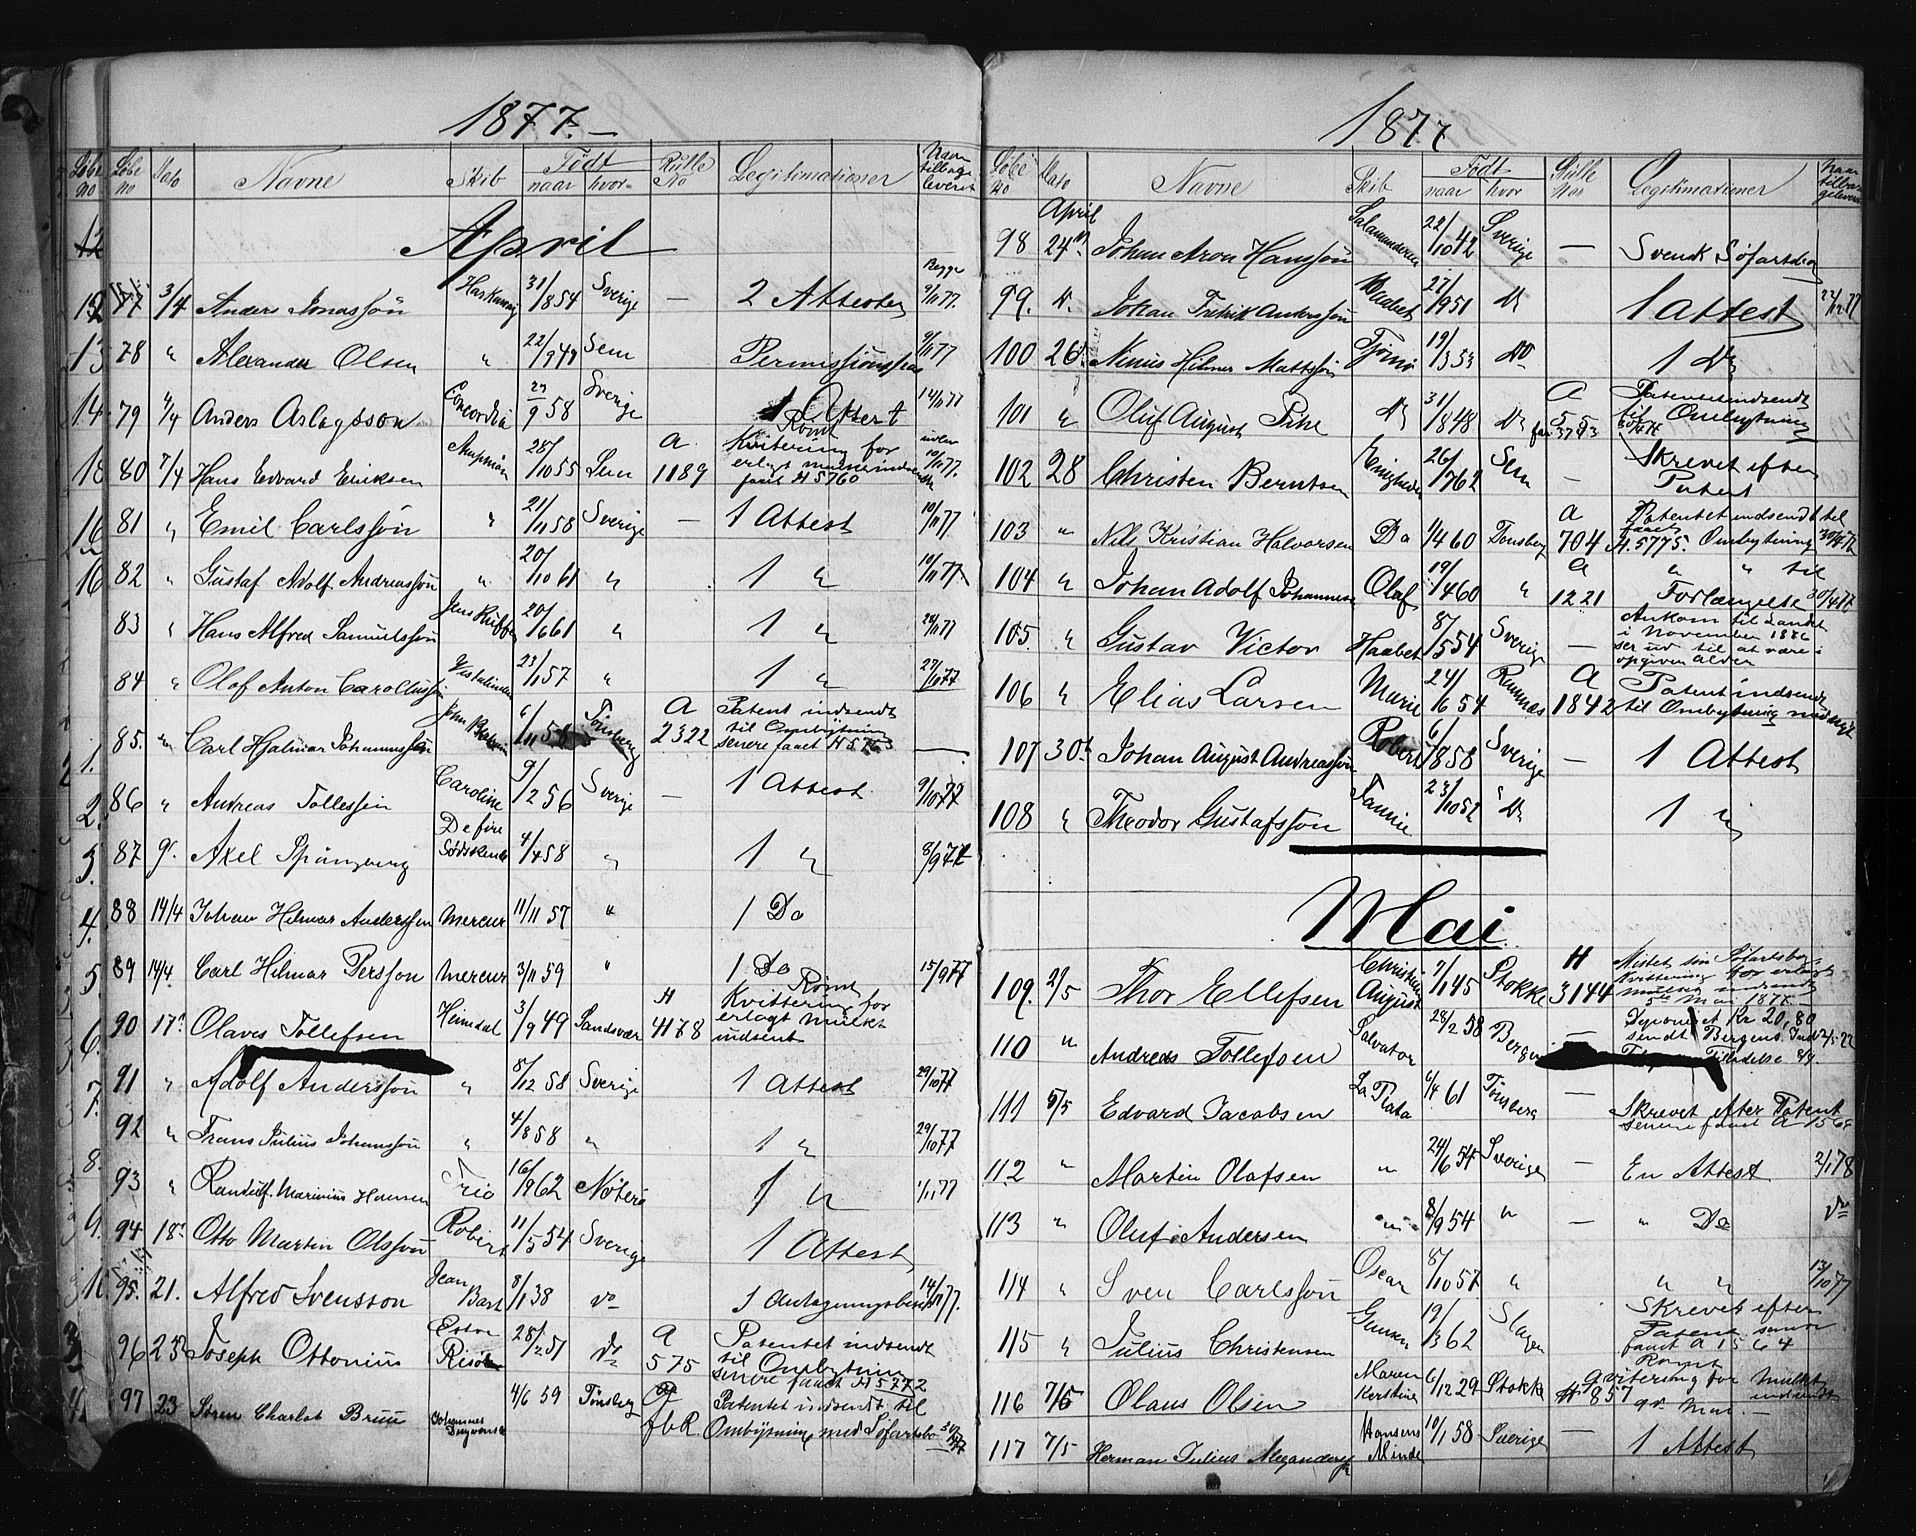 1877.—
Løbe No Løbe No Dato Navne Skib Født naar hvor Rulle No Legitimationer Naar tilbage leveret
April
12 77 3/4 Anders Jonassøn 31/8 54 Sverige — 2 Attester Begge 9/11 77.
13 78 " Alexander Olsen " 22/9 Sem Permissionspas 9/11 77
14 79 4/4 Anders Aslagsson Concordia 29/9 58 Sverige 1 Attest 14/11 77
15 80 7/4 Hans Edvard Eriksen 28/10 55 Sem A 1189 Rømt Kvitering for erlagt mulct indsendt faaet A 5760 10/11 77.
16 81 " Emil Carlssøn " 21/11 58 Sverige — 1 Attest 10/11 77.
16 82 " Gustaf Adolf Andreassøn " 20/10 61 " 1 " 10/11 77
83 " Hans Alfred Samuelssøn 20/6 61 " 1 " 24/11 77
84 " Olof Anton Carolusson 23/1 57 " 1 " 27/10 77
1. 85. " Carl Hjalmar Johannessøn John 6/11 58 Tønsberg A 2322 Patent indsendt til Ombytning senere faaet A 5763 —
2. 86 " Andreas Tollessøn Caroline 9/2 56 Sverige — 1 Attest 9/10 77
3. 87 9. Axel Spångberg De fire Sødskende 4/4 58 " 1 " 8/9 77
4. 88 14/4 Johan Hilmar Anderssen Mercur 11/11 57 " 1 Do
5 89 14/4. Carl Hilmar Persson Mercur 3/11 59 " 1 Do 15/9 77
6. 90 17. Olaves Tollefsen Heimdal 3/9 49 Sandsvær A 4178 Rømt Kvittering for erlagt Mulkt indsent
7. 91 " Adolf Anderssøn " 8/12 58 Sverige 1 Attest 29/10 77
92 " Frans Julius Johanssøn " 4/8 58 " 1 " 29/10 77
8. 93 " Randulf Marinius Hansen Trio 16/9 62 Nøterø 1 " 1/11 77
9. 94 18. Otto Martin Olssøn Robert 11/5 54 Sverige 1 Attest
10. 95. 21. Alfred Svensson Jean Bart 8/1 38 Do 1 Antagningsbevis 14/11 77.
96 23 Joseph Ottonius Risør 28/2 51 Do A 575 Patentet indsendt til Ombytning senere faaet A 5772
97 23 Søren Charlot Bruu Johannes 4/6 59 Tønsberg fbR. Patentet indsendt til Ombytning med Søfartsbo 30/4 77
1877
Løbe No Dato Navne Skib Født naar hvor Rulle Nos Legitimationer Naar tilbageleveret
April
98 24 Johan Aron Hanssøn Salamanderen 22/10 42 Sverige — Svensk Søfartsbog
99. D. Johan Fredrik Anderssøn Haabet 27/9 51 Do 1 Attest 22/12 77
100 26 Hilmer Mattssøn Tjømø 19/3 53 Do 1 Do
101 " Oluf August Do 31/8 48 Do A Patenet indsendt til Ombytning
102 28 Christen Berntsen Enigheden 26/7 62 Sem — Skrevet efter Patent
103 " Nils Kristian Halvorsen Do 1/4 60 Tønsberg A 704 Patentet indsendt til faaet A. 5775. Ombytning 30/4 77
104 " Johan Adolf Johannesen Olaf 19/4 60 " A 1221 " " til Forlængelse 30/4 77
105. " Gustav Victor Haabet 8/5 54 Sverige — Ankom til Landet i November 1876 ser ud til at være i opgiven alder
106 " Elias Larsen Marie 24/1 54 Ramnæs A 1842 Patent indsendt til Ombytning
107 30 Johan August Andreassøn Robert 6/8 58 Sverige — 1 Attest
108 " Theodor Gustafssøn Fannie 23/10 52 Do 1 "
Mai
109. 2/5 Thor Ellefsen Christine August 7/1 45 Stokke H 3144 Mistet sin Søfartsbog Kvittering for erlagt mulct indsendt 5te Mai 1877
110 " Andreas Tollefsen Salvator 28/2 58 Bergen — Deponeret Kr 20,80 sendt Bergens
111 5/5 Edvard Jacobsen La Plata 6/4 61 Tønsberg — Skrevet efter Patent senere faaet A 156
112 " Martin Olafsen " 24/6 54 Sverige — En Attest 2/1 78
113 " Oluf Andersen " 8/9 54 " — " Do Do
114 " Sven Carlssøn Oscar 8/10 57 " " " 13/10 77
115 " Julius Christensen 19/3 62 Slagen Skrevet efter Patent senere faaet A 1564
116 7/5 Olaus Olsen Maren Kerstine 6/12 29 Stokke A 857 Rømt Qvitering for Mulkt indsendt 9de Mai.—
117 7/5 Herman Julius Alexandersen Hansens Minde 10/1 58 Sverige — 1 Attest